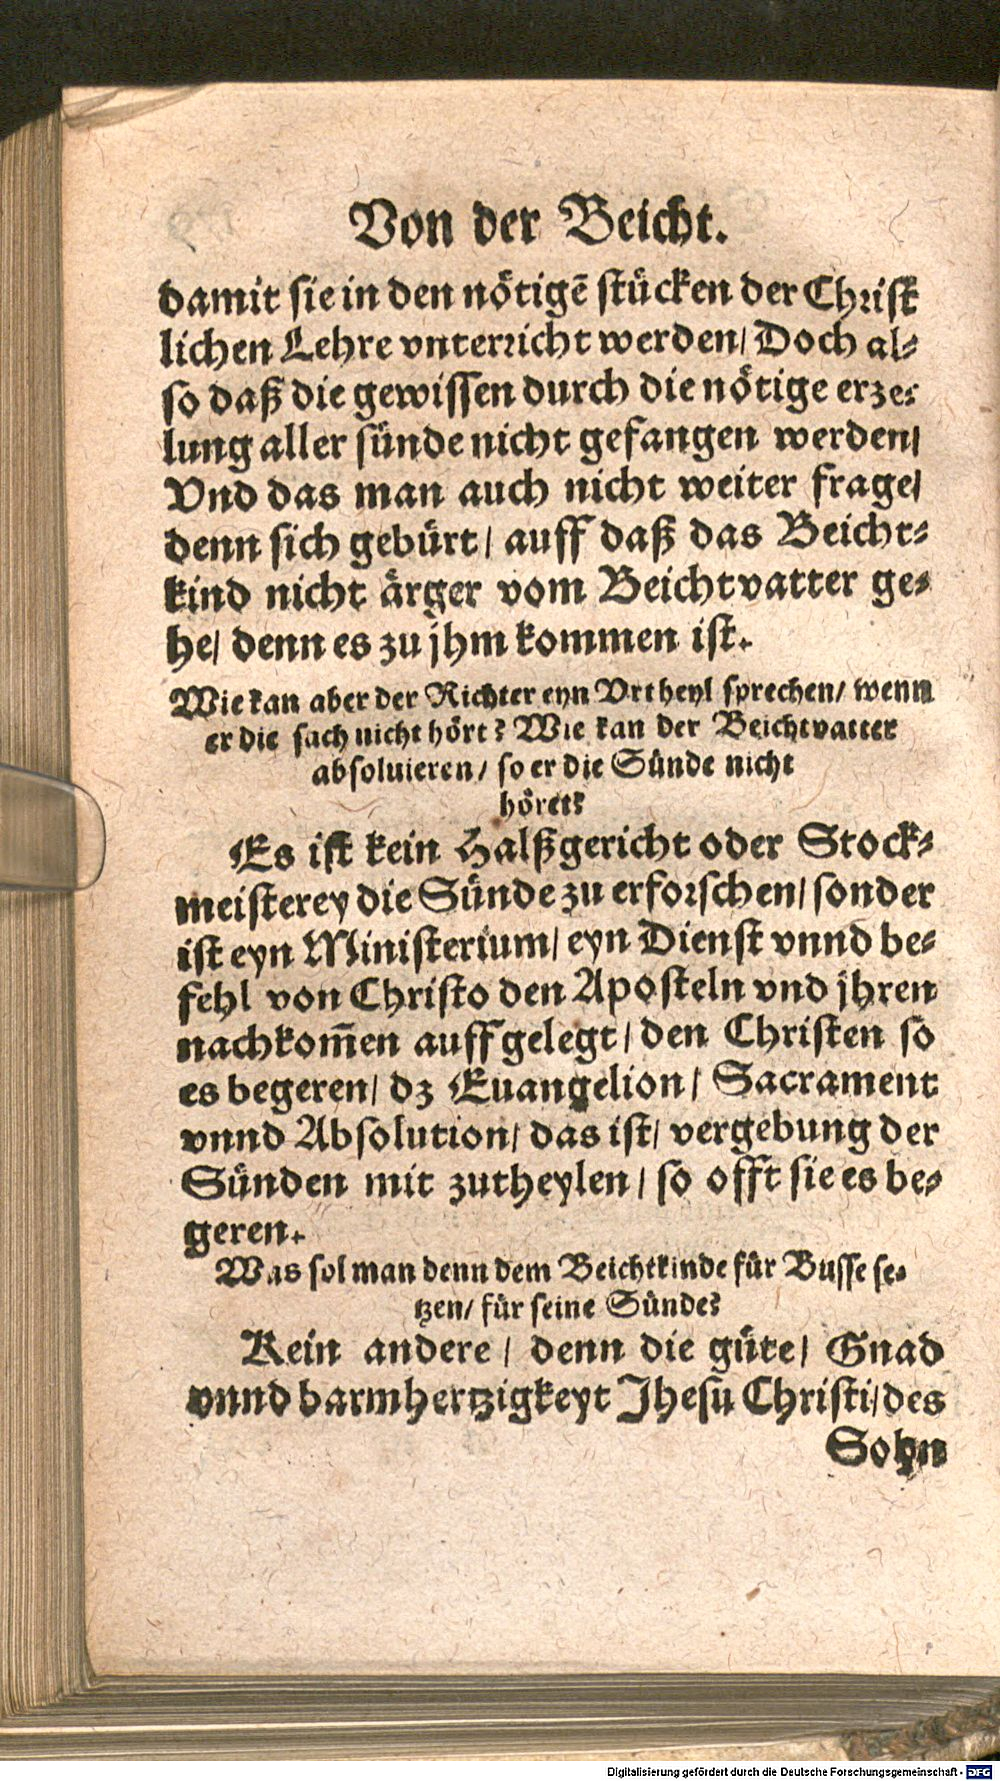 Von der Beicht.
damit sie in den nötigē stücken der Christ
lichen Lehre vnterricht werden/ Doch al-
so daß die gewissen durch die nötige erze-
lung aller sünde nicht gefangen werden/
Vnd das man auch nicht weiter frage/
denn sich gebürt/ auff daß das Beicht-
kind nicht ärger vom Beichtvatter ge-
he/ denn es zu jhm kommen ist.
Wie kan aber der Richter eyn Vrtheyl sprechen/ wenn
er die sach nicht hört? Wie kan der Beichtvatter
absoluieren/ so er die Sünde nicht
höret?
Es ist kein Halßgericht oder Stock-
meisterey die Sünde zu erforschen/ sonder
ist eyn Ministerium/ eyn Dienst vnnd be-
fehl von Christo den Aposteln vnd jhren
nachkom̄en auffgelegt/ den Christen so
es begeren/ dz Euangelion/ Sacrament
vnnd Absolution/ das ist/ vergebung der
Sünden mit zutheylen/ so offt sie es be-
geren.
Was sol man denn dem Beichtkinde für Busse se-
tzen/ für seine Sünde?
Kein andere/ denn die güte/ Gnad
vnnd barmhertzigkeyt Jhesu Christi/ des
Sohn
Digitalisierung gefördert durch die Deutsche Forschungsgemeinschaft - DFG